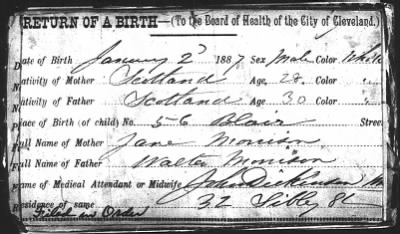 RETURN OF A BIRTH—(To the Board of Health of the City of Cleveland.)
Date of Birth January 2d 1887 Sex Male Color White
Nativity of Mother Scotland Age, 28. Color "
Nativity of Father Scotland Age, 30 Color "
Place of Birth (of child) No. 56 Blair Street
Full Name of Mother Jane Morrison
Full Name of Father Walter Morrison
Name of Medical Attendant or Midwife John Dickinson M
Residence of same 32 Sibley St
Filed in Order